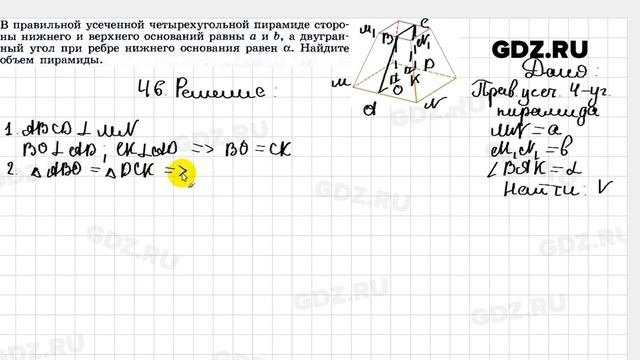 В правильной усеченной четырехугольной пирамиде сторо-
ны нижнего и верхнего оснований равны a и b, а двугран-
ный угол при ребре нижнего основания равен α. Найдите
объем пирамиды.
46. Решение:
1. ABCD ⊥ MN
BO ⊥ AD; CK ⊥ AD => BO = CK
2. △ABO = △DCK =>
M₁
C
B
N₁
D
K
O
M
A
N
GDZ.RU
Дано:
Прав. усеч. 4-уг.
пирамида
MN = a
M₁N₁ = b
∠BAK = α
Найти: V
GDZ.RU
GDZ.RU
GDZ.RU
GDZ.RU
GDZ.RU